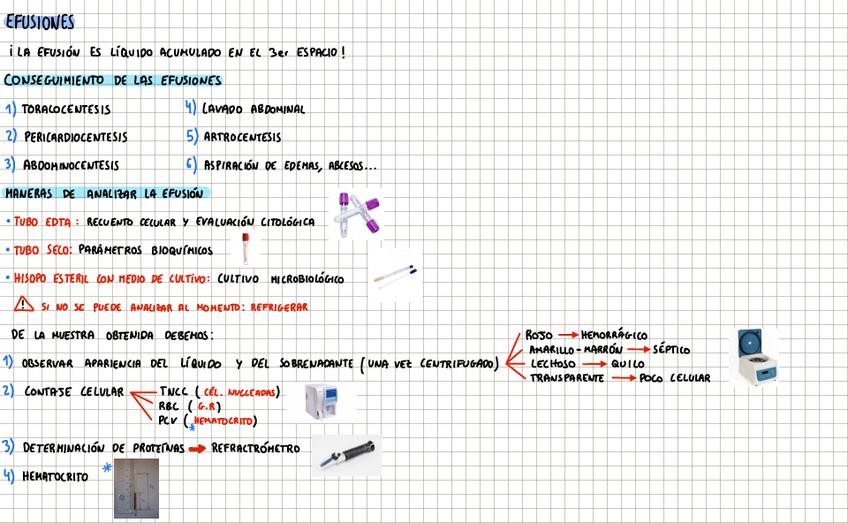 EFUSIONES
¡LA EFUSIÓN ES LÍQUIDO ACUMULADO EN EL 3er ESPACIO!
CONSEGUIMIENTO DE LAS EFUSIONES
1) TORALOCENTESIS
4) LAVADO ABDOMINAL
2) PERICARDIOCENTESIS
5) ARTROCENTESIS
3) ABDOMINOCENTESIS
6) ASPIRACIÓN DE EDEMAS, ABCESOS...
MANERAS DE ANALIZAR LA EFUSIÓN
• TUBO EDTA: RECUENTO CELULAR Y EVALUACIÓN CITOLÓGICA
• TUBO SECO: PARÁMETROS BIOQUÍMICOS
• HISOPO ESTERIL CON MEDIO DE CULTIVO: CULTIVO MICROBIOLÓGICO
⚠ SI NO SE PUEDE ANALIZAR AL MOMENTO: REFRIGERAR
DE LA MUESTRA OBTENIDA DEBEMOS:
1) OBSERVAR APARIENCIA DEL LÍQUIDO Y DEL SOBRENADANTE (UNA VEZ CENTRIFUGADO)
ROJO → HEMORRÁGICO
AMARILLO-MARRÓN → SÉPTICO
LECHOSO → QUILO
TRANSPARENTE → POCO CELULAR
2) CONTAJE CELULAR
TNCC (CÉL. NUCLEADAS)
RBC (G.R)
PCV (HEMATOCRITO)
*
3) DETERMINACIÓN DE PROTEÍNAS → REFRACTRÓMETRO
4) HEMATOCRITO *